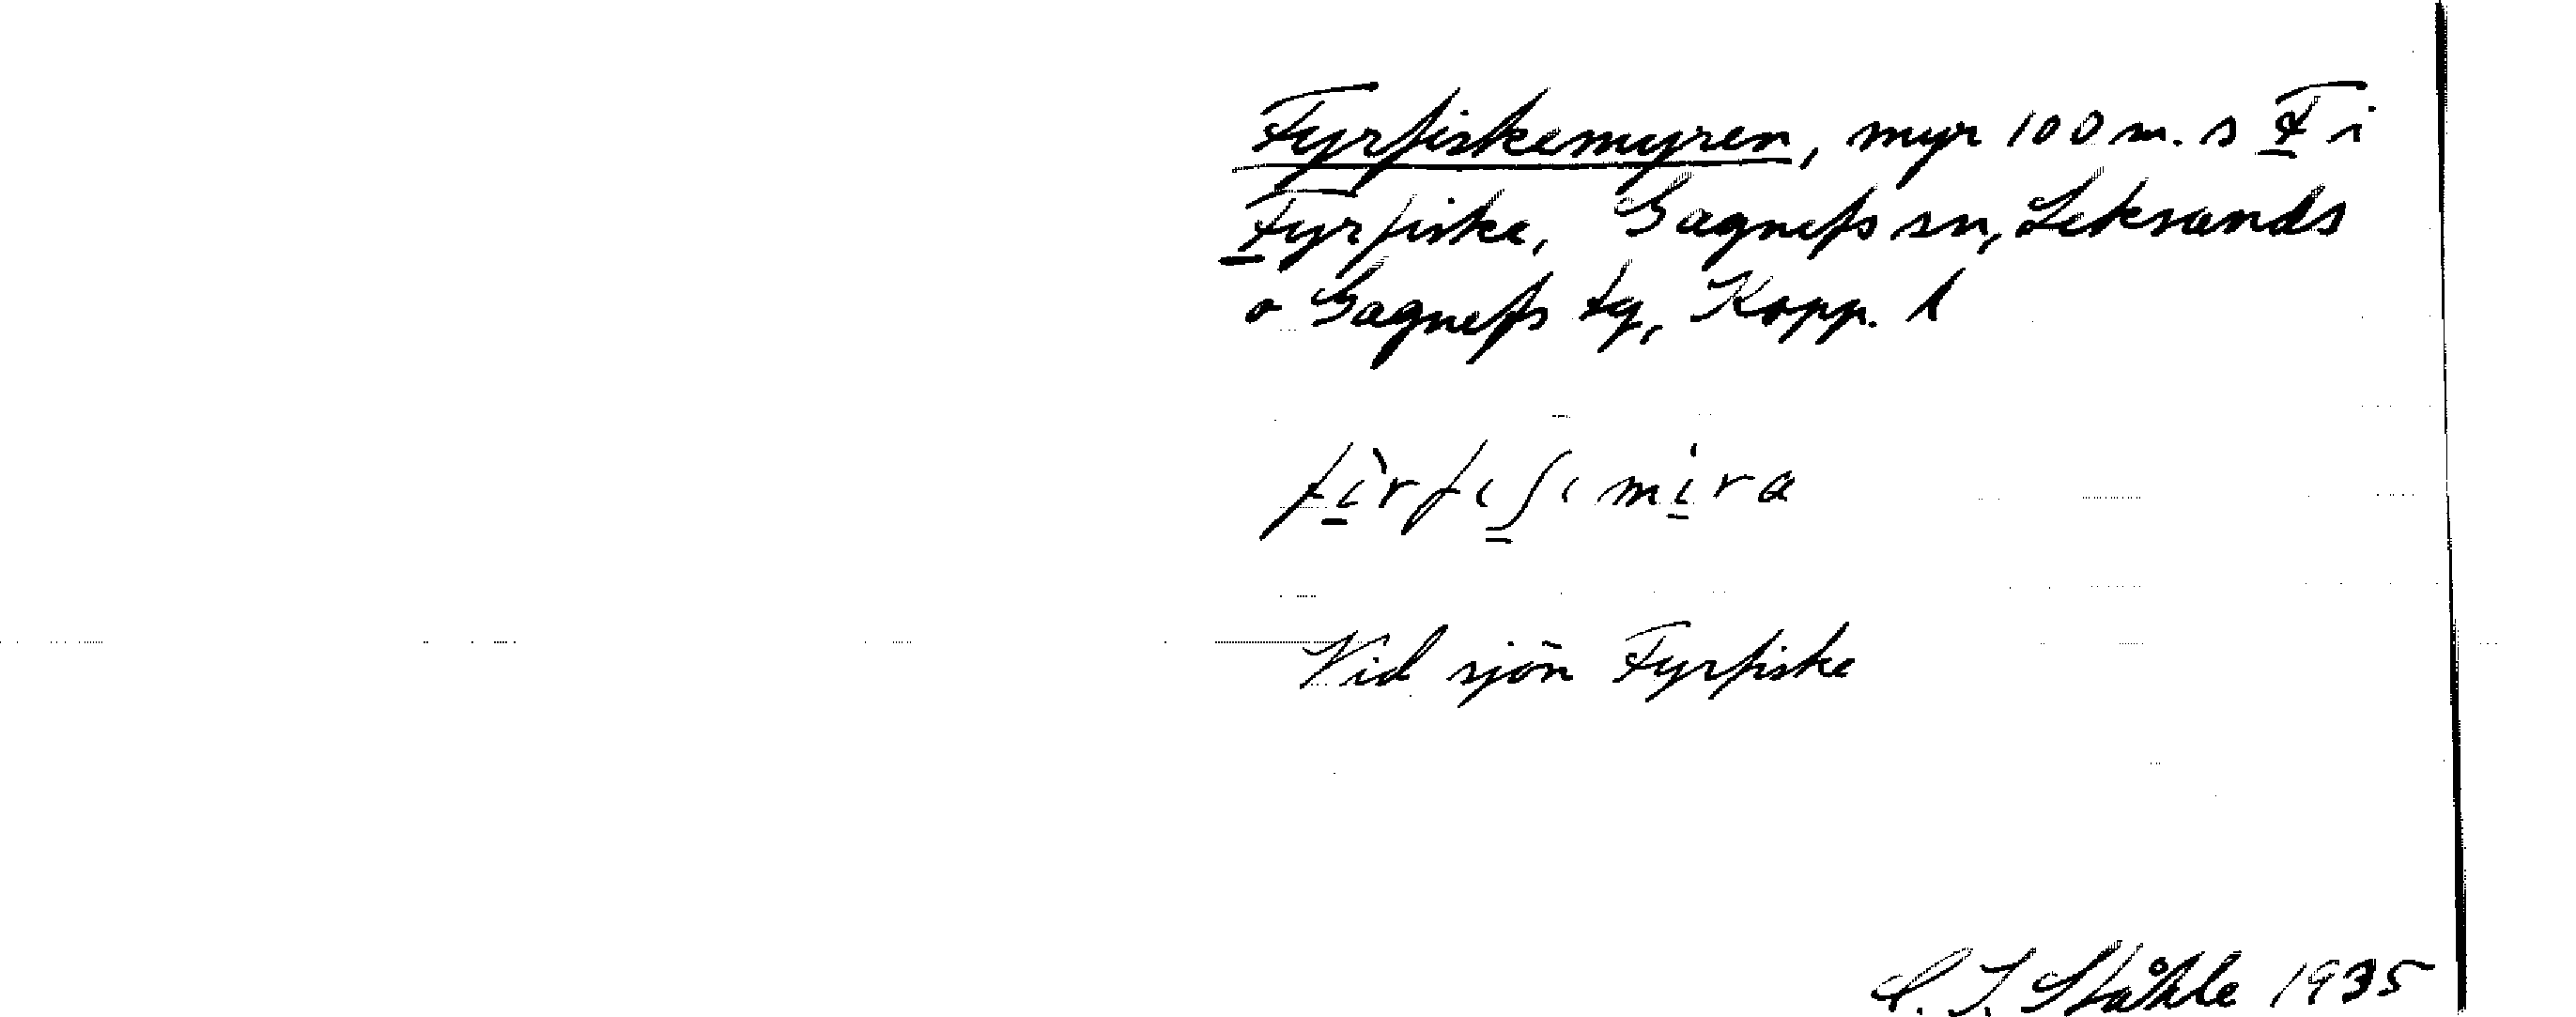 Fyrfiskemyren, myr 100 m. s F i
Fyrfiske, Gagnefs sn, Leksands
o Gagnefs tg, Kopp. l
fìrfɩʃɩmira
Vid sjön Fyrfiske
C. I. Ståhle 1935